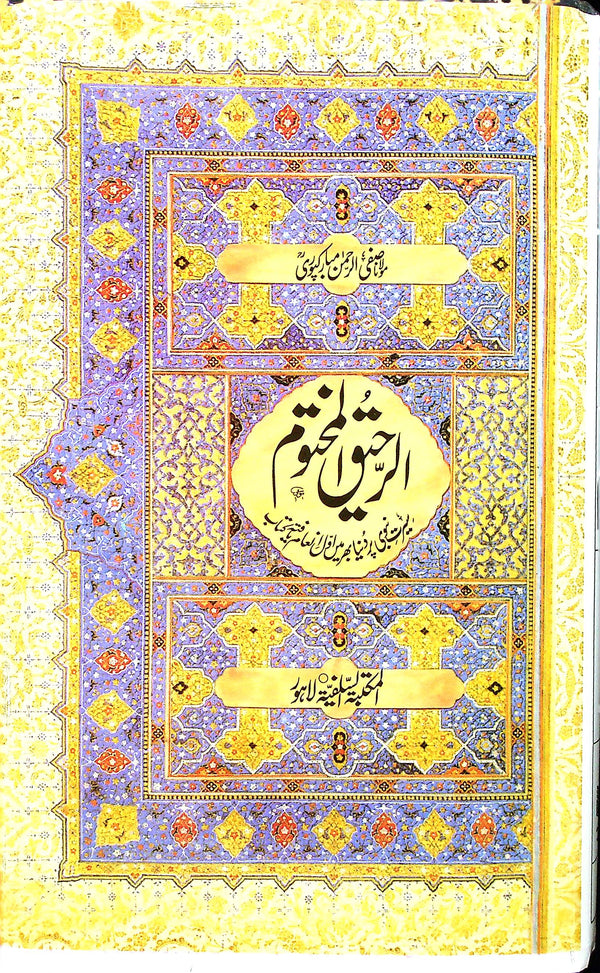 مولانا صفی الرحمٰن مبارکپوریؒ
الرحیق المختوم
سیرت نبی پر دنیا بھر میں اول انعام یافتہ کتاب
المکتبۃ السلفیۃ لاہور